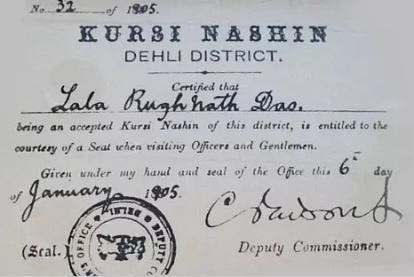 No. 32 of 1905.
KURSI NASHIN
DEHLI DISTRICT.
Certified that
Lala Rughnath Das.
being an accepted Kursi Nashin of this district, is entitled to the
courtesy of a Seat when visiting Officers and Gentlemen.
Given under my hand and seal of the Office this 6th day
of January 1905.
(Seal.)
DEPUTY
OFFICE
DELHI
Deputy Commissioner.